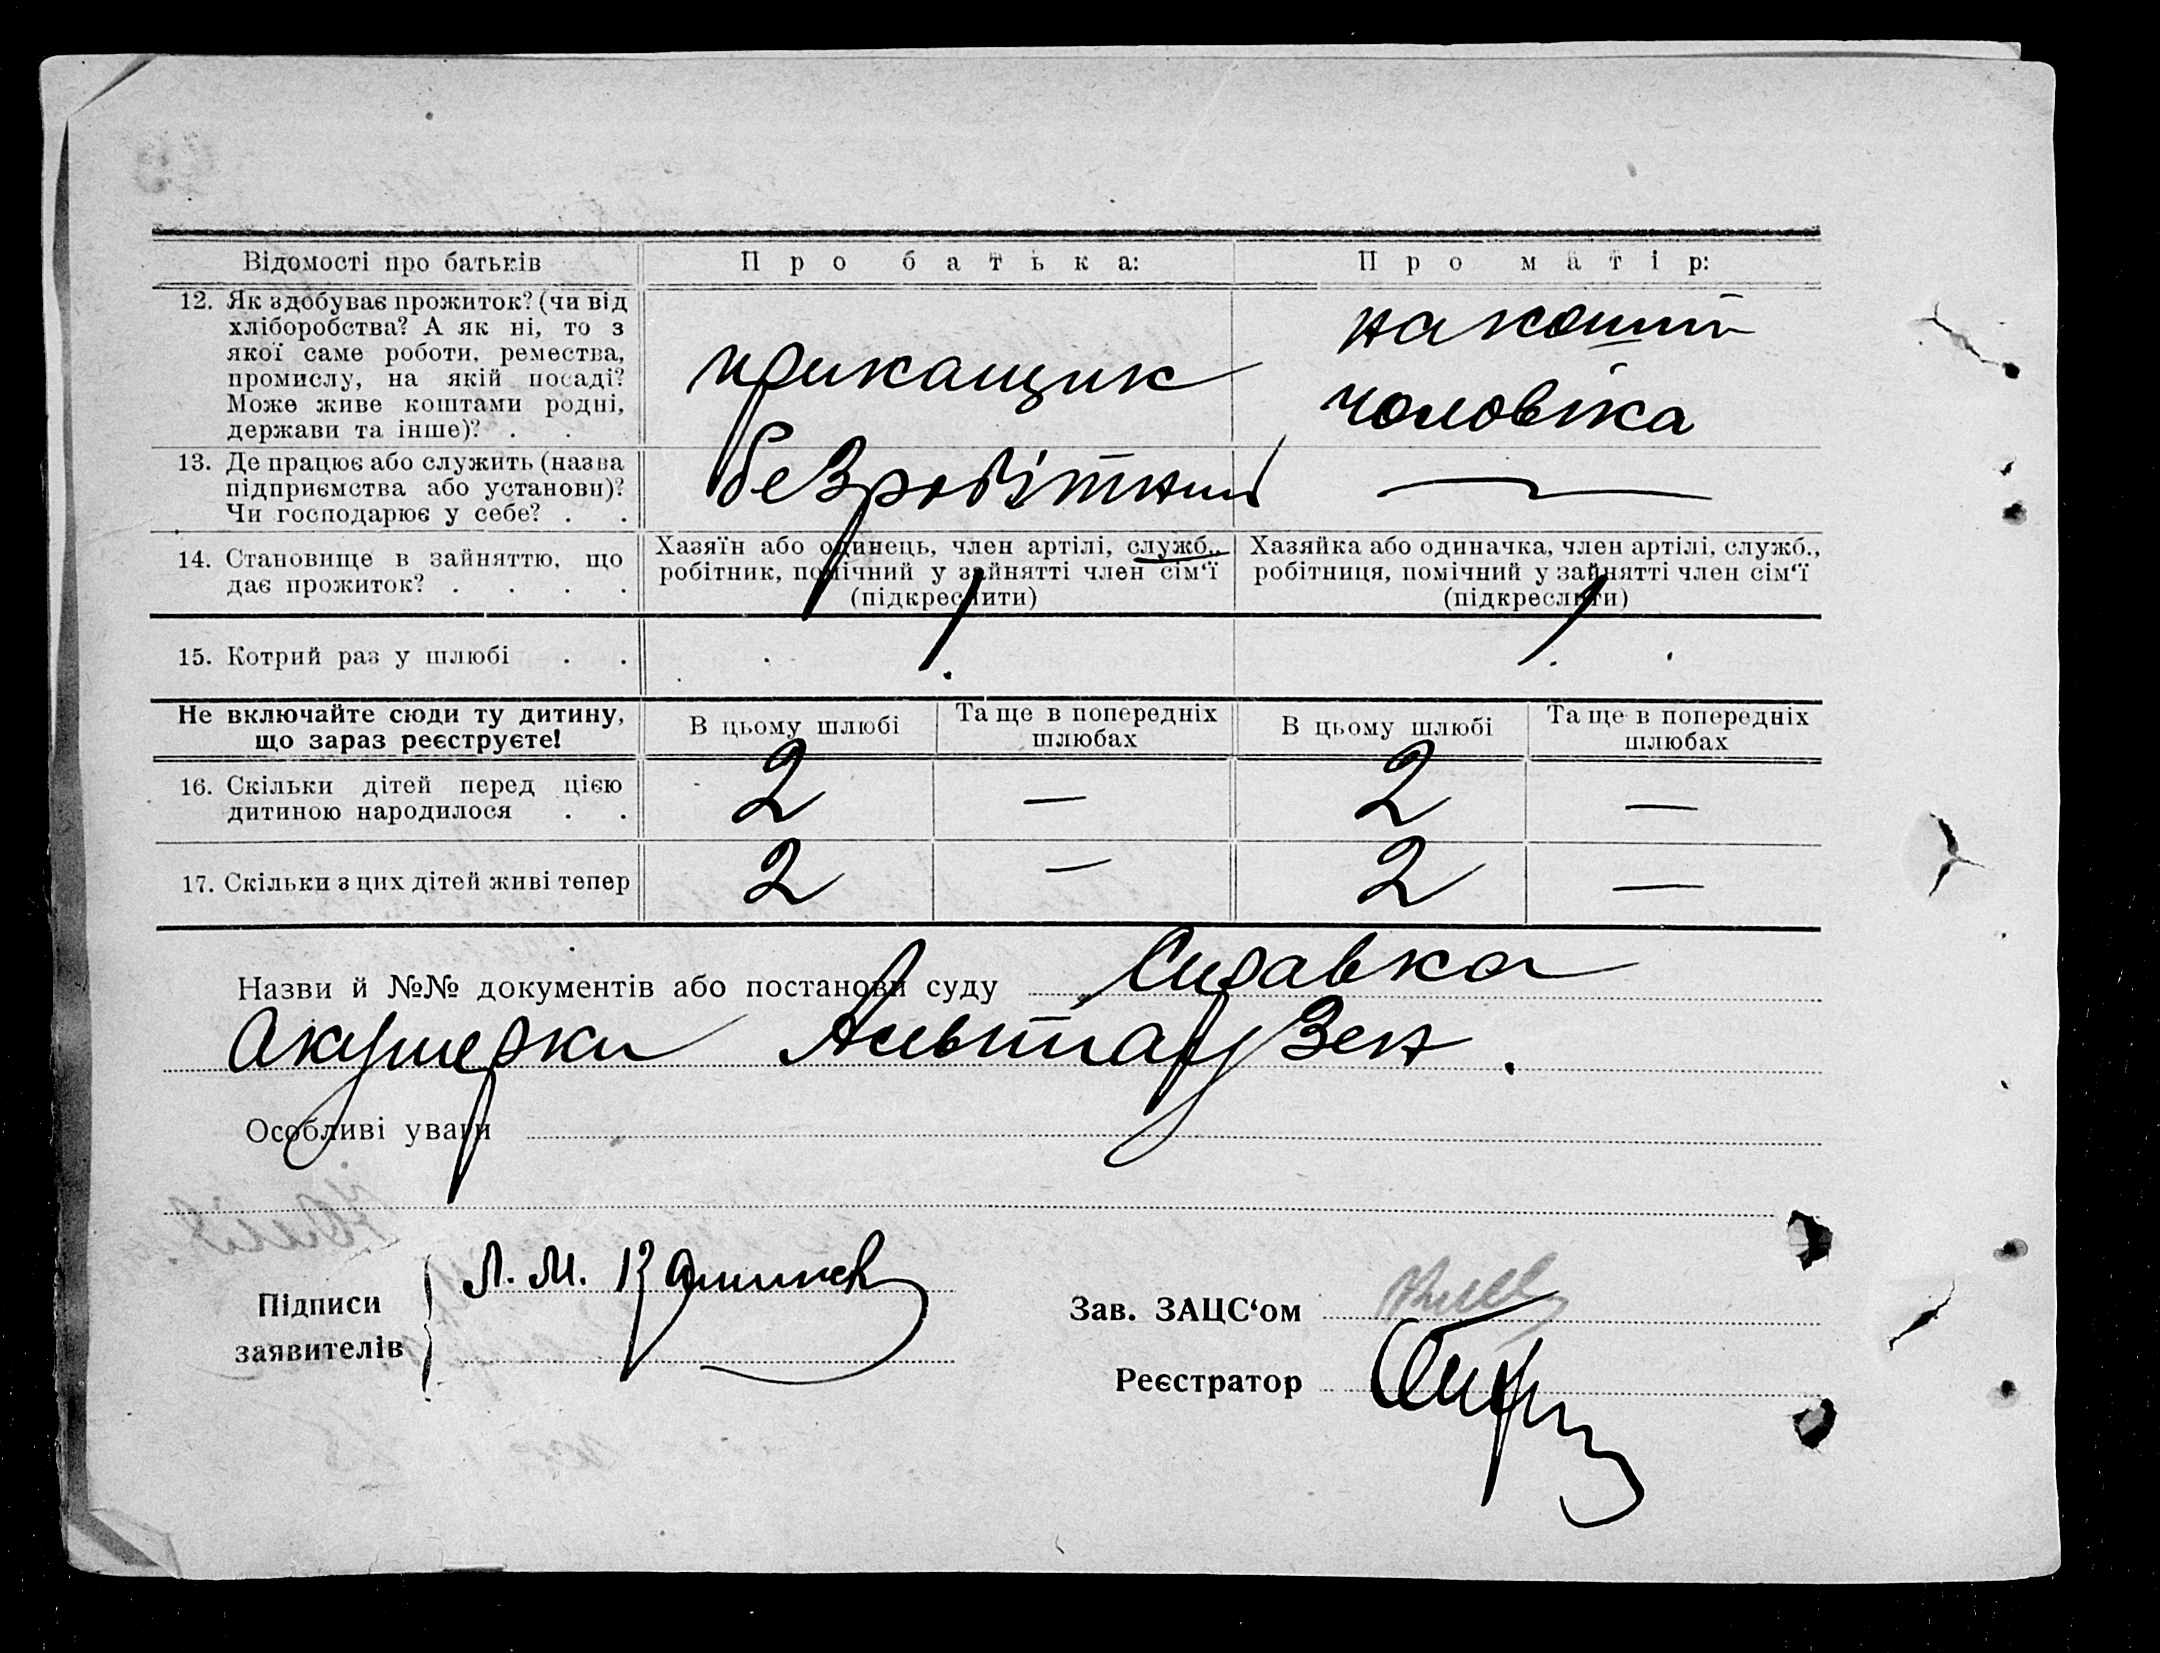 Відомості про батьків
Про батька:
Про матір:
12. Як здобуває прожиток? (чи від
хліборобства? А як ні, то з
якої саме роботи, ремества,
промислу, на якій посаді?
Може живе коштами родні,
держави та інше)? . .
прикащик
на кошти
чоловіка
13. Де працює або служить (назва
підприємства або установи)?
Чи господарює у себе? . .
безробітний
—
14. Становище в зайняттю, що
дає прожиток? . . . .
Хазяїн або одинець, член артілі, служб.,
робітник, помічний у зайнятті член сім‘ї
(підкреслити)
Хазяйка або одиначка, член артілі, служб.,
робітниця, помічний у зайнятті член сім‘ї
(підкреслити)
15. Котрий раз у шлюбі . .
1
1
Не включайте сюди ту дитину,
що зараз реєструєте!
В цьому шлюбі
Та ще в попередніх
шлюбах
В цьому шлюбі
Та ще в попередніх
шлюбах
16. Скільки дітей перед цією
дитиною народилося . .
2 — 2 —
17. Скільки з цих дітей живі тепер
2 — 2 —
Назви й №№ документів або постанови суду Справка
Акушерки Альтаузен.
Особливі уваги
Підписи
заявителів
Л. М.
Зав. ЗАЦС‘ом
Реєстратор